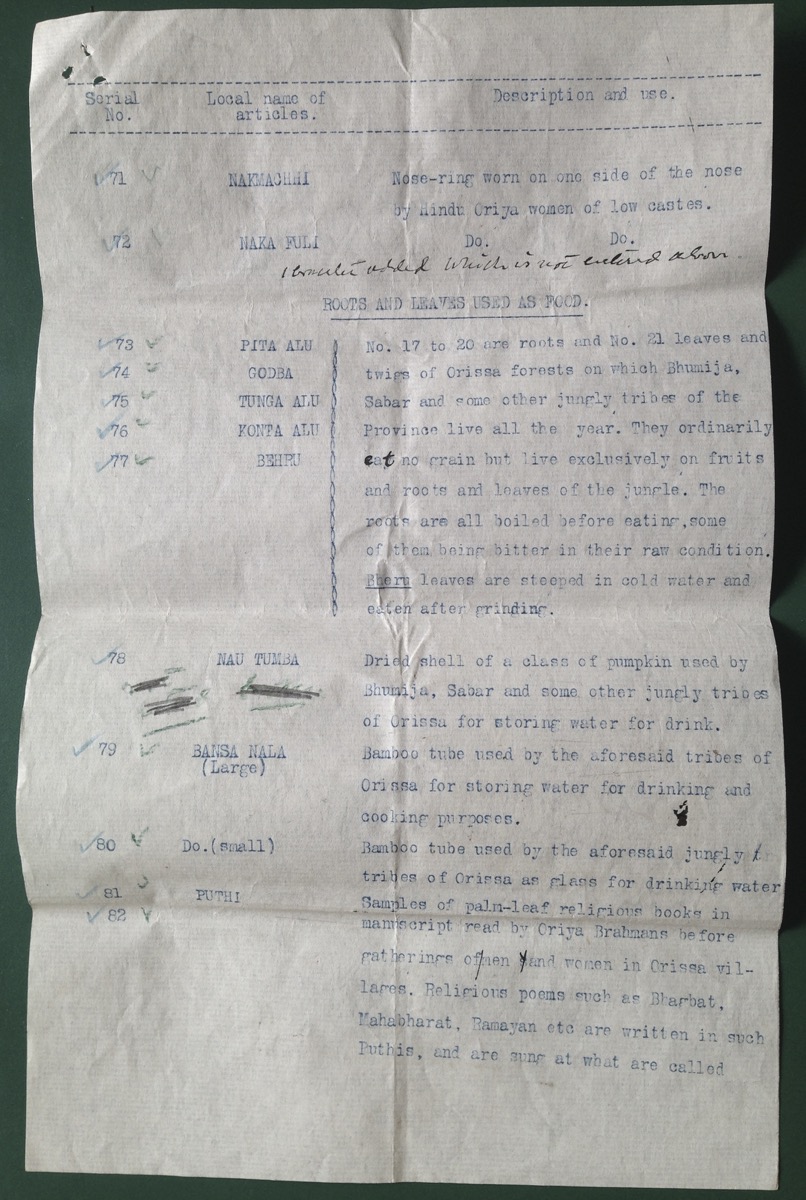 Serial No. Local name of articles. Description and use.
71 NAKMACHHI Nose-ring worn on one side of the nose
by Hindu Oriya women of low castes.
72 NAKA FULI Do. Do.
added which is not entered above.
ROOTS AND LEAVES USED AS FOOD.
73 PITA ALU No. 17 to 20 are roots and No. 21 leaves and
74 GODBA twigs of Orissa forests on which Bhumija,
75 TUNGA ALU Sabar and some other jungly tribes of the
76 KONTA ALU Province live all the year. They ordinarily
77 BEHRU eat no grain but live exclusively on fruits
and roots and leaves of the jungle. The
roots are all boiled before eating,some
of them being bitter in their raw condition.
Bheru leaves are steeped in cold water and
eaten after grinding.
78 NAU TUMBA Dried shell of a class of pumpkin used by
Bhumija, Sabar and some other jungly tribes
of Orissa for storing water for drink.
79 BANSA NALA Bamboo tube used by the aforesaid tribes of
(Large) Orissa for storing water for drinking and
cooking purposes.
80 Do.(small) Bamboo tube used by the aforesaid jungly
tribes of Orissa as glass for drinking water
81 PUTHI Samples of palm-leaf religious books in
82 manuscript read by Oriya Brahmans before
gatherings of men and women in Orissa vil-
lages. Religious poems such as Bhagbat,
Mahabharat, Ramayan etc are written in such
Puthis, and are sung at what are called